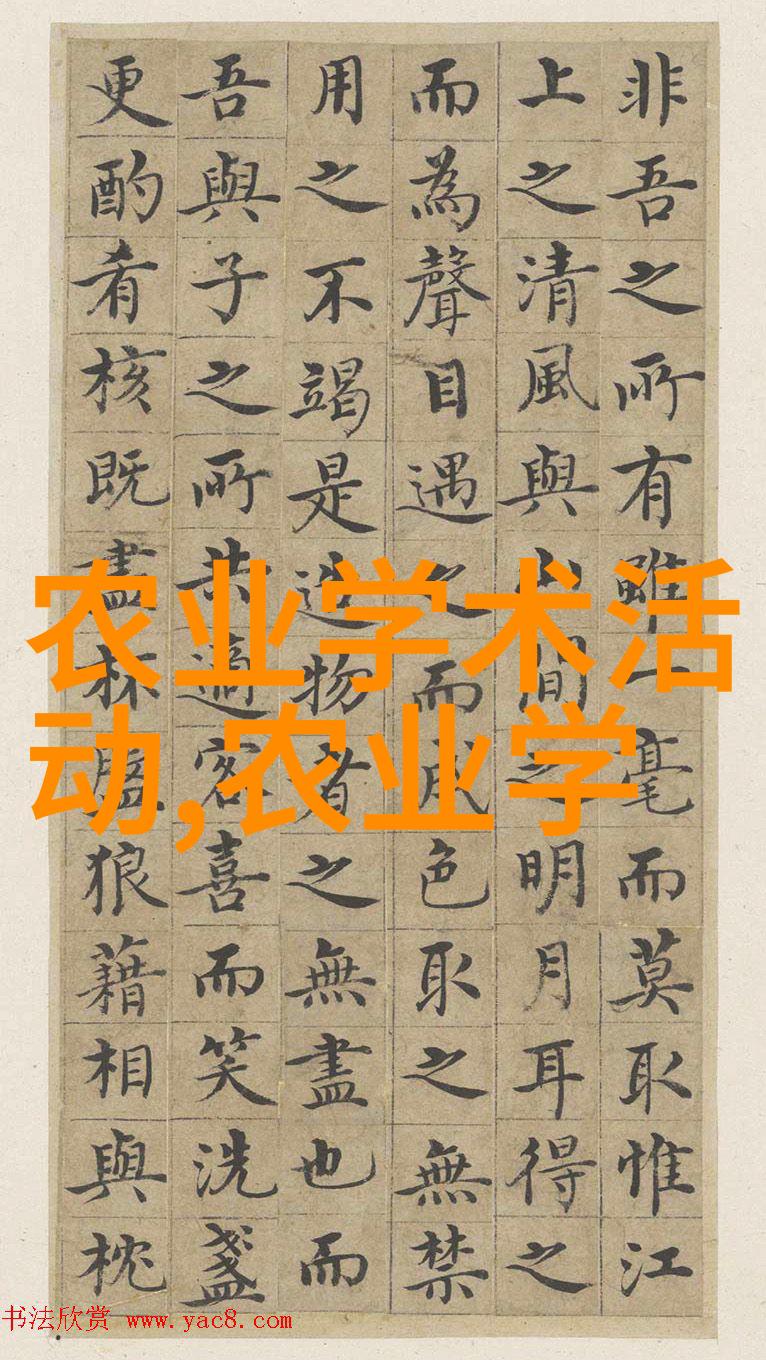 非吾之所有雖一毫而莫取惟江
上之清風與山間之明月耳得之
而為聲目遇之而成色取之無禁
用之不竭是造物者之無盡也而
吾與子之所共適客喜而笑洗盞
更酌肴核既盡杯盤狼藉相與枕
农业学术活
动,农业学
书法欣赏 www.yac8.com